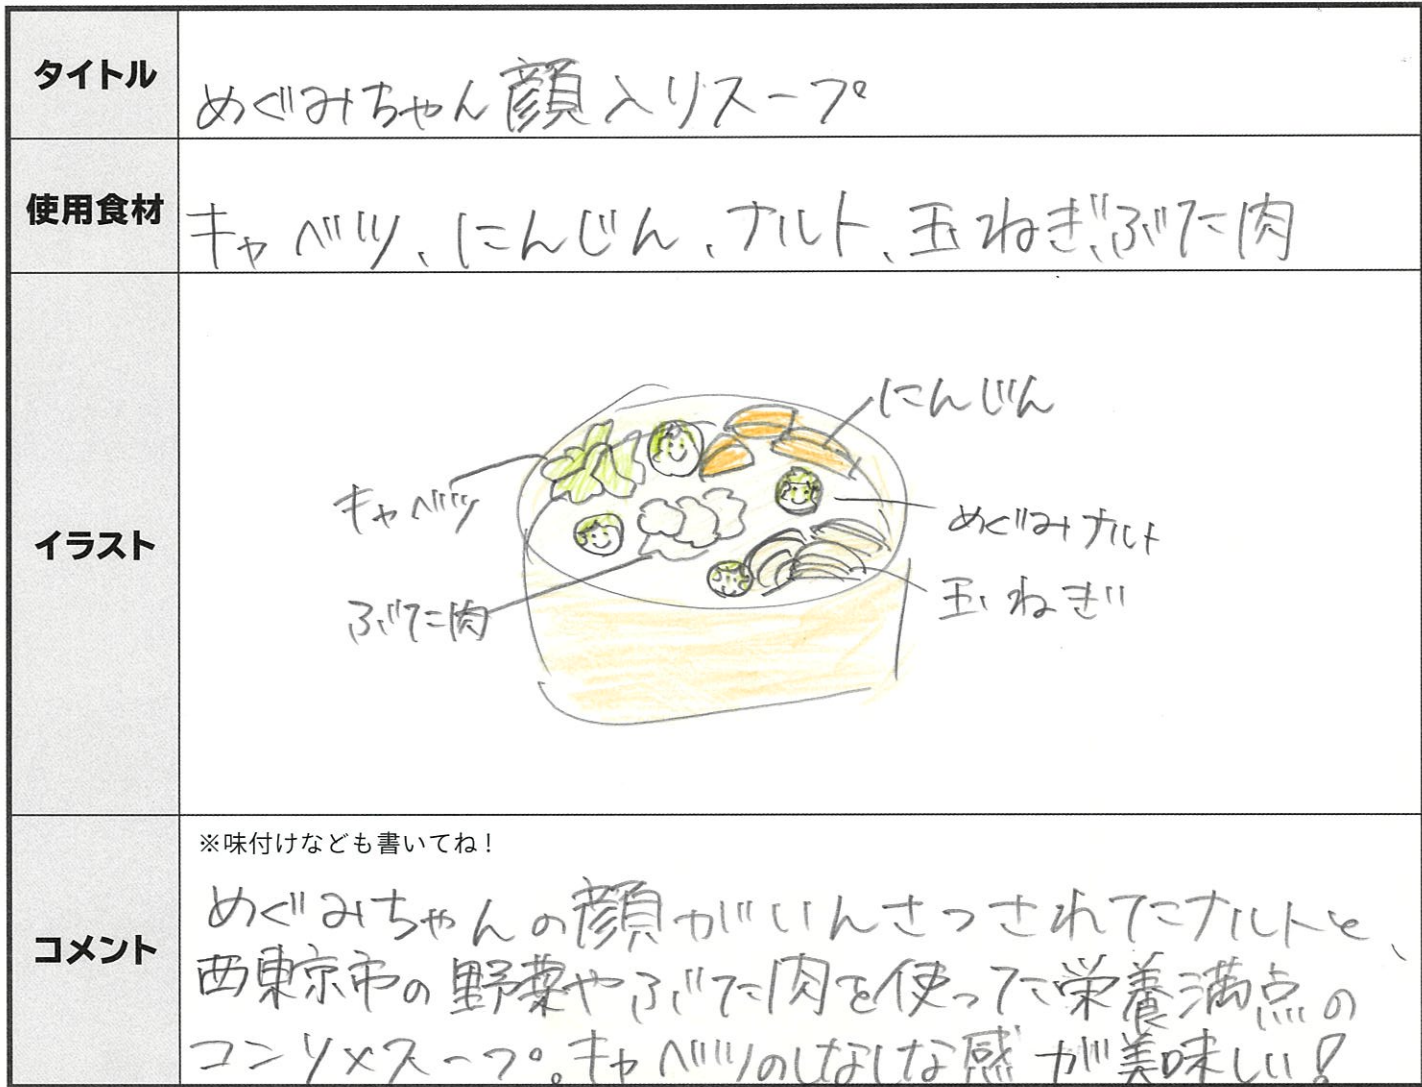 タイトル
めぐみちゃん顔入りスープ
使用食材
キャベツ、にんじん、ナルト、玉ねぎ、ぶた肉
イラスト
にんじん
キャベツ
めぐみナルト
玉ねぎ
ぶた肉
コメント
※味付けなども書いてね！
めぐみちゃんの顔がいんさつされたナルトと、
西東京市の野菜やぶた肉を使った栄養満点の
コンソメスープ。キャベツのしなしな感が美味しい！